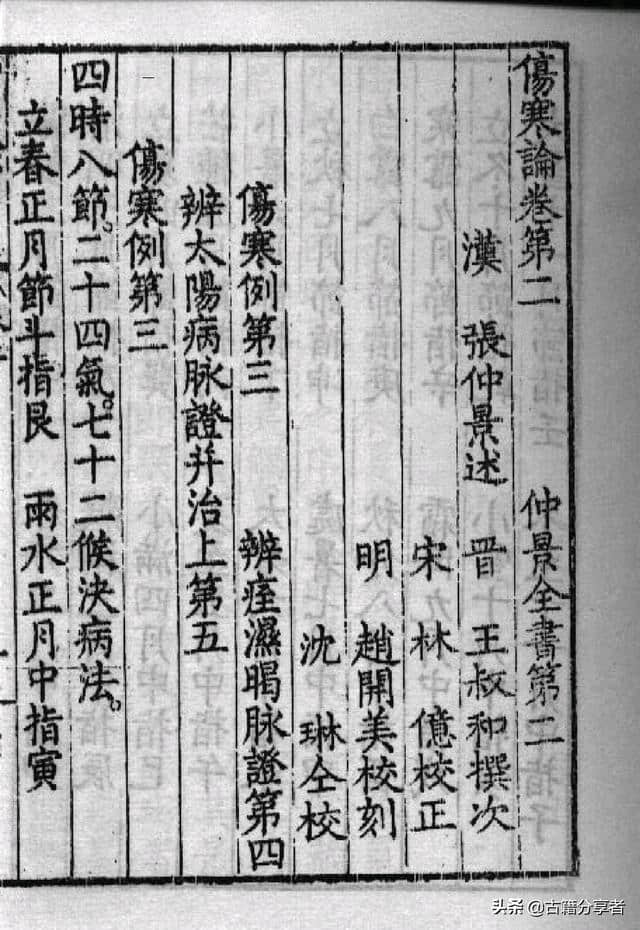 傷寒論卷第二 仲景全書第二
漢 張仲景述 晋 王叔和撰次
宋 林 億校正
明 趙開美校刻
沈 琳仝校
傷寒例第三 辨痓濕暍脉證第四
辨太陽病脉證并治上第五
傷寒例第三
四時八節。二十四氣。七十二候決病法。
立春正月節斗指艮 雨水正月中指寅
头条 @古籍分享者